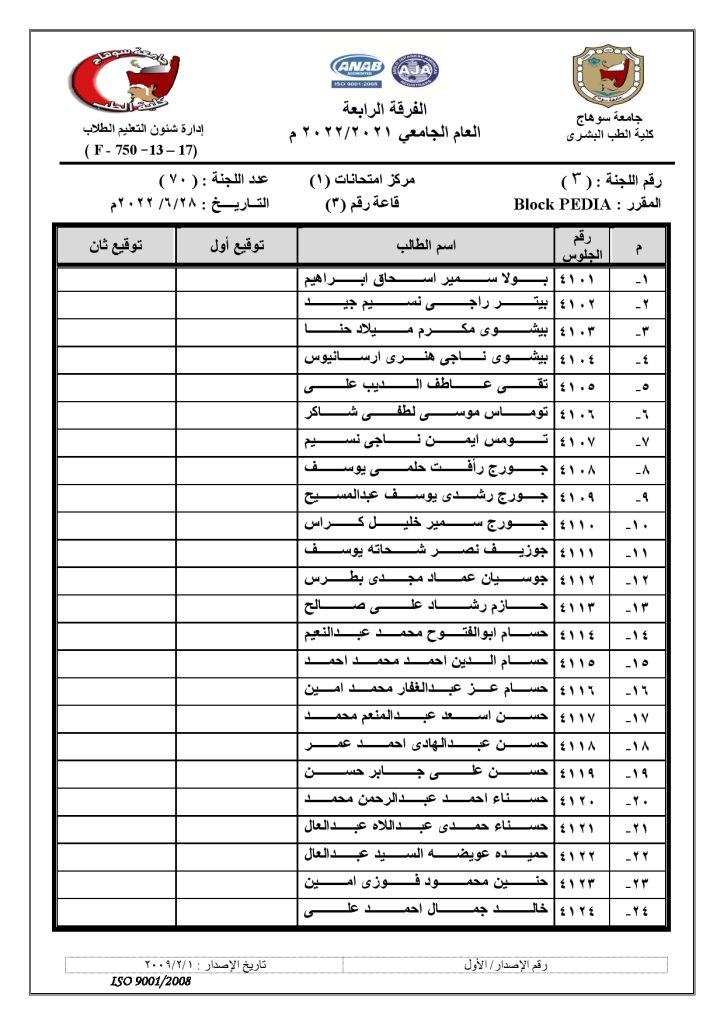 جامعة سوهاج
كلية الطب البشرى
ANAB
ACCREDITED
ISO 9001:2008
AJA
الفرقة الرابعة
العام الجامعي ٢٠٢٢/٢٠٢١ م
جامعة سوهاج
كلية الطب
إدارة شئون التعليم الطلاب
( F - 750 –13 – 17)
رقم اللجنة : ( ٣ ) مركز امتحانات (١) عدد اللجنة : ( ٧٠ )
المقرر : Block PEDIA قاعة رقم (٣) التـاريـــخ : ٢٨ /٦/ ٢٠٢٢م
م رقم الجلوس اسم الطالب توقيع أول توقيع ثان
١- ٤١٠١ بولا سمير اسحاق ابراهيم
٢- ٤١٠٢ بيتر راجى نسيم جيد
٣- ٤١٠٣ بيشوى مكرم ميلاد حنا
٤- ٤١٠٤ بيشوى ناجى هنرى ارسانيوس
٥- ٤١٠٥ تقى عاطف الديب على
٦- ٤١٠٦ توماس موسى لطفى شاكر
٧- ٤١٠٧ تومس ايمن ناجى نسيم
٨- ٤١٠٨ جورج رأفت حلمى يوسف
٩- ٤١٠٩ جورج رشدى يوسف عبدالمسيح
١٠- ٤١١٠ جورج سمير خليل كراس
١١- ٤١١١ جوزيف نصر شحاته يوسف
١٢- ٤١١٢ جوسيان عماد مجدى بطرس
١٣- ٤١١٣ حازم رشاد على صالح
١٤- ٤١١٤ حسام ابوالفتوح محمد عبدالنعيم
١٥- ٤١١٥ حسام الدين احمد محمد احمد
١٦- ٤١١٦ حسام عز عبدالغفار محمد امين
١٧- ٤١١٧ حسن اسعد عبدالمنعم محمد
١٨- ٤١١٨ حسن عبدالهادى احمد عمر
١٩- ٤١١٩ حسن على جابر حسن
٢٠- ٤١٢٠ حسناء احمد عبدالرحمن محمد
٢١- ٤١٢١ حسناء حمدى عبداللاه عبدالعال
٢٢- ٤١٢٢ حميده عويضه السيد عبدالعال
٢٣- ٤١٢٣ حنين محمود فوزى امين
٢٤- ٤١٢٤ خالد جمال احمد على
رقم الإصدار/ الأول تاريخ الإصدار : ٢٠٠٩/٢/١
ISO 9001/2008